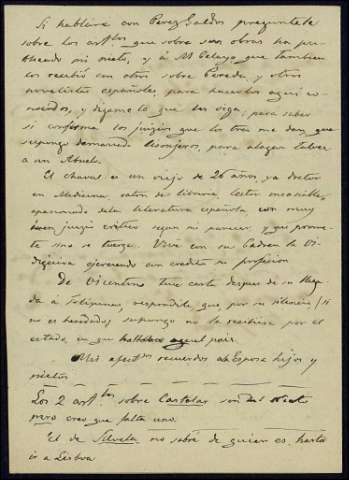 Si hablare con Perez Galdos preguntele
sobre los artlos que sobre sus obras ha pu-
blicado mi nieto, y á M Pelayo que tambien
los recibió con otros sobre Pereda, y otros
novelistas españoles, para hacerlos aqui co-
nocidos, y digame lo que les oiga, para saber
si confirma los juicios que los tres me dan, que
supongo demasiado lisonjeros, para alagar
a un Abuelo.
El chaval es un viejo de 26 años, ya doctor
en Medicina, raton de libreria, lector insaciable,
apasionado de la literatura española con muy
buen juicio critico segun mi parecer, y que prome-
te sino se tuerze. Vive con su Padre en Vi-
digueira ejerciendo con credito su profesion
De Vicentino tuve carta despues de su llega-
da á Filipinas, respondile, que por su silencio (si
no es haraganeria) supongo no la recibiera por el
estado, en que hallabase aquel pais.
Mis afectos recuerdos a la Esposa hijos y
nietos
Los 2 artlos sobre Castelar son del Nieto
pero creo que falta uno.
El de Silvela no sobre de quien es,
á Lisboa